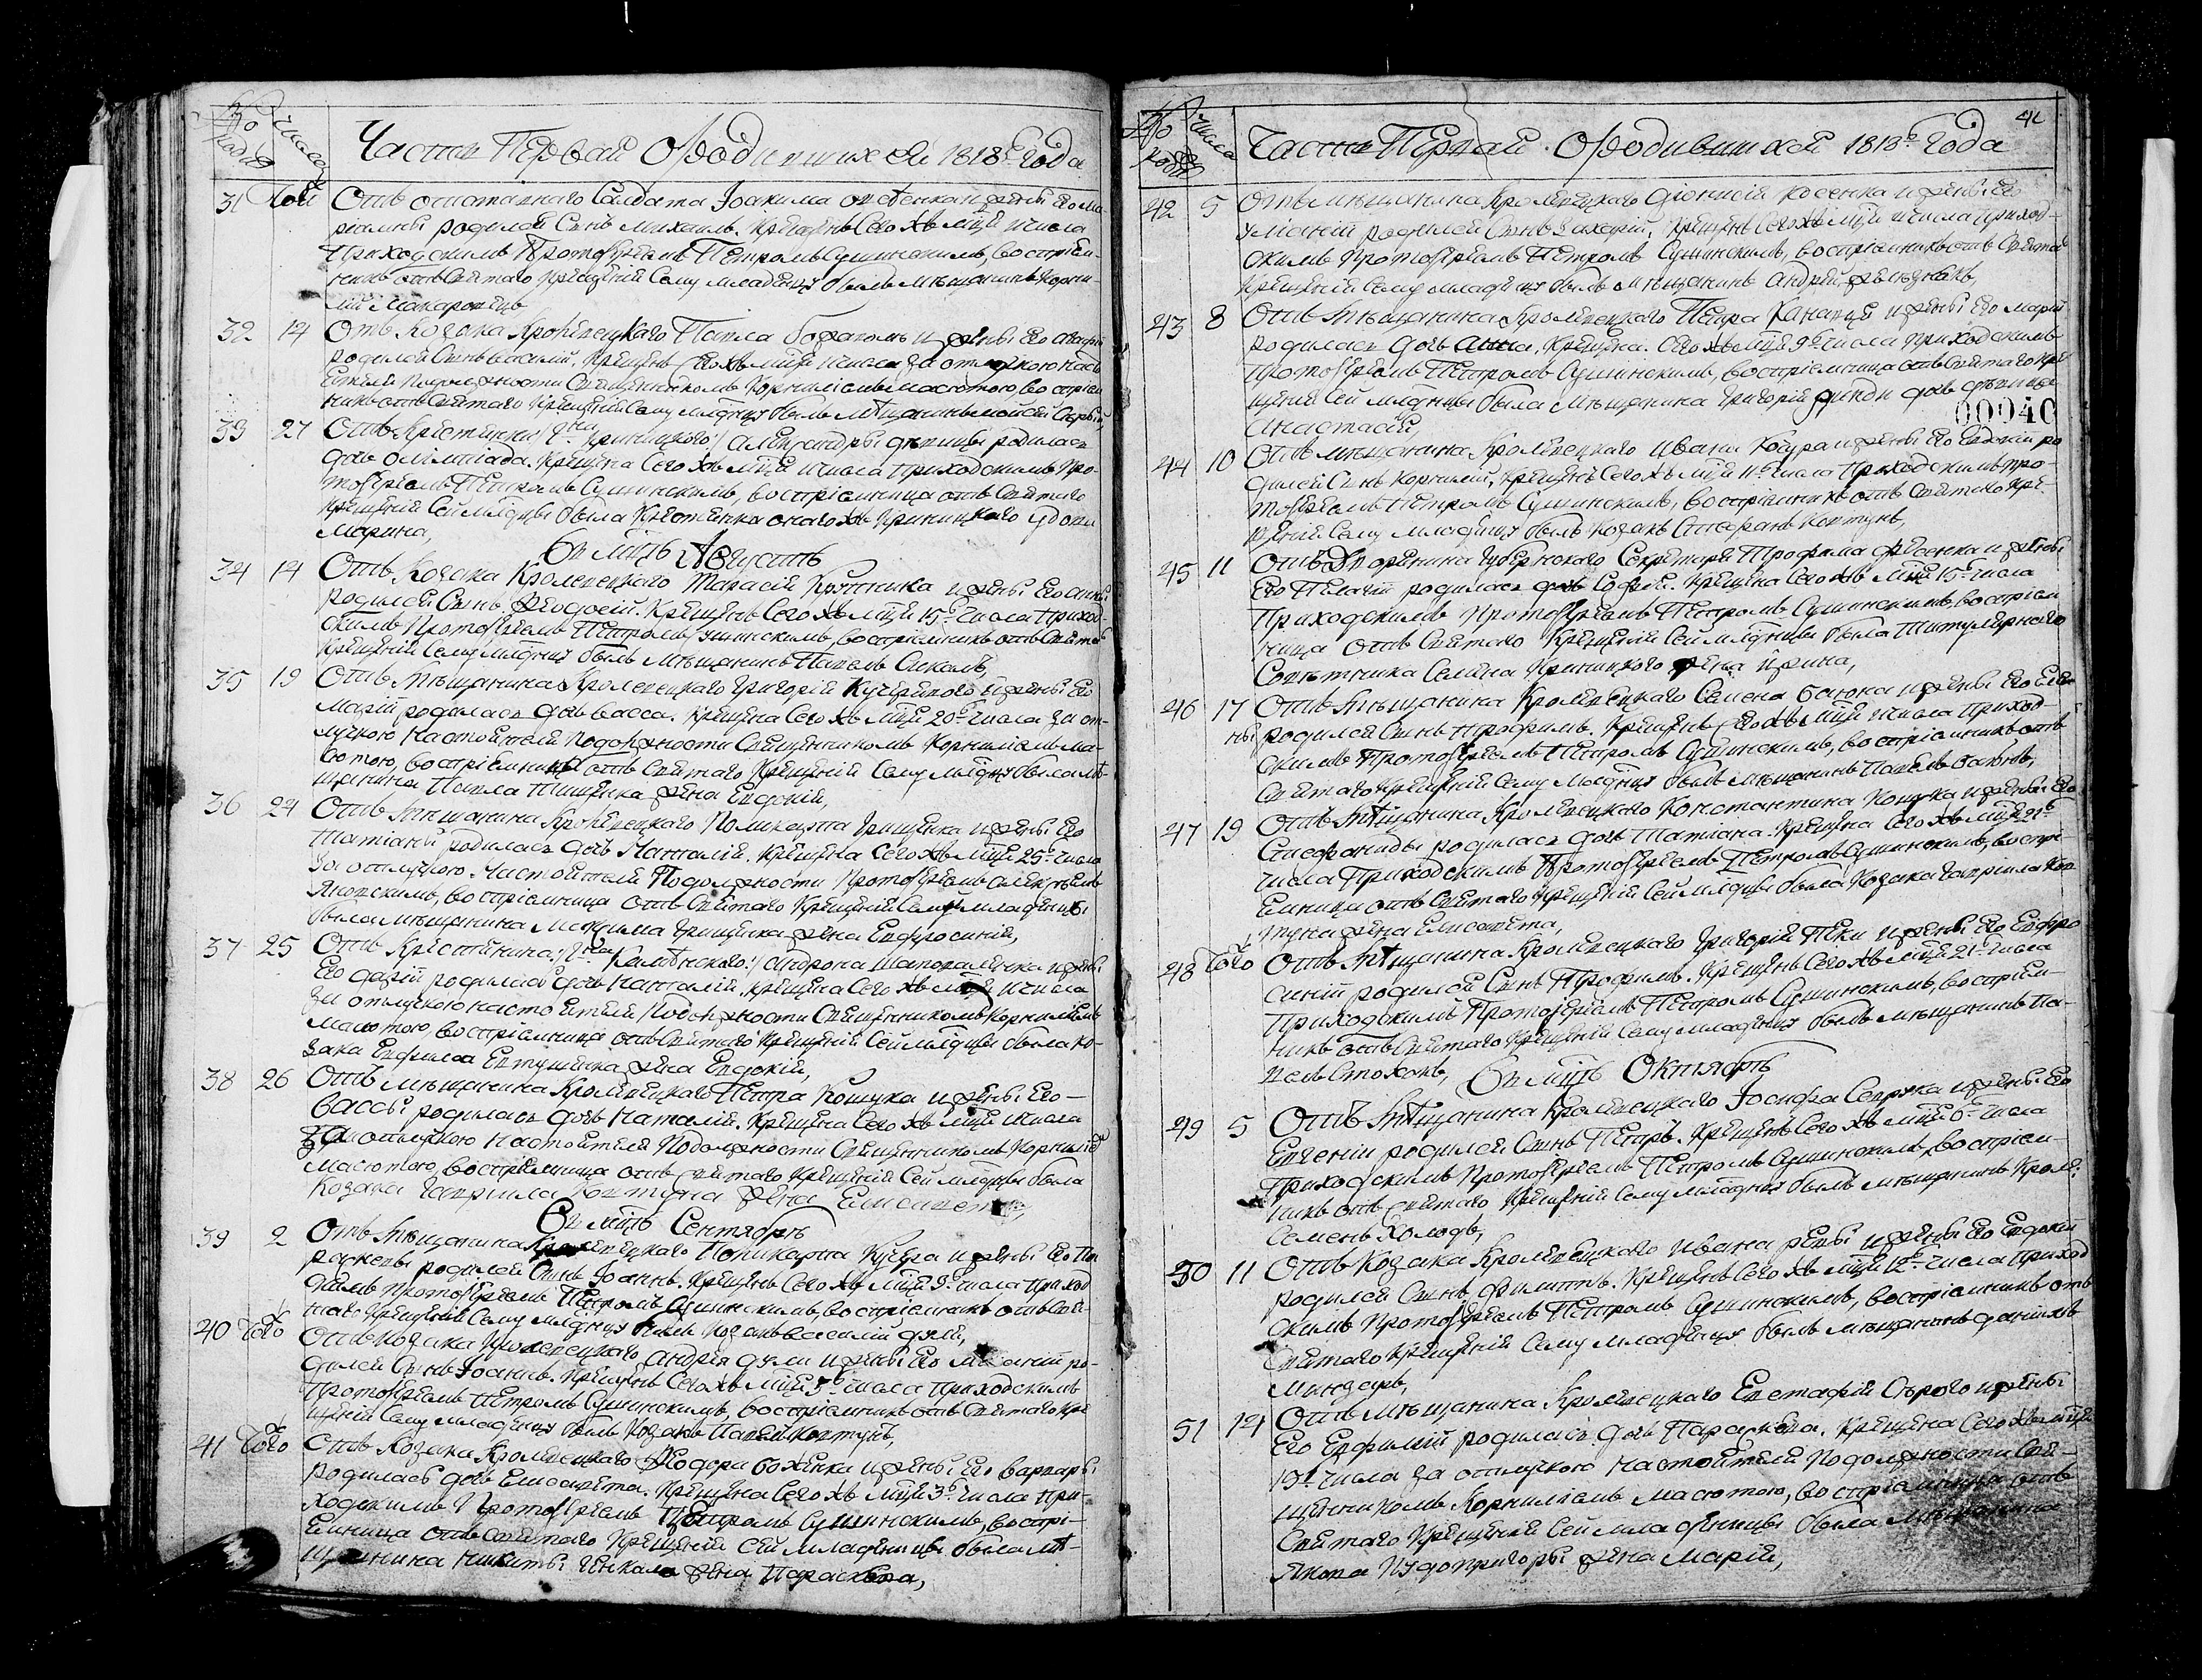 Часть Первая О Родившихся 1818г. Года
31 Той Отъ отставнаго Салдата Іоакима и жены его Ма-
ріанны родился Сынъ Михаилъ. Крещенъ Сего жъ мца числа
Приходскимъ Протоіереемъ Петромъ Сушинскимъ, воспріем-
никъ отъ Святаго Крещенія Сему младенцу былъ мѣщанинъ Корни-
лій Макаровецъ
32 14 Отъ Козака Кролевецкаго Павла и жены его
родился Сынъ Василій. Крещенъ Сего жъ мца числа за отлучкою насто
ятеля по должности Священникомъ Корниліемъ Масютою, воспріем
никъ отъ Святаго Крещенія Сему младнцу былъ мѣщанинъ Моисей
33 27 Отъ Крестянки Г:на Криницкаго Александры дѣвицы родилась
дочь Олимпіада. Крещена Сего жъ мца числа Приходскимъ Про-
тоіереемъ Петромъ Сушинскимъ, воспріемница отъ Святаго
Крещенія Сей младнцы была Крестянка онаго жъ Криницкаго вдова
Марина,
Въ мцѣ Августѣ
34 14 Отъ Козака Кролевецкаго Тарасія и жены его Анны
родился Сынъ Феодосій. Крещенъ Сего жъ мца 15го числа Приход
скимъ Протоіереемъ Петромъ Сушинскимъ, воспріемникъ отъ Святаго
Крещенія Сему младнцу былъ мѣщанинъ Павелъ
35 19 Отъ Мѣщанина Кролевецкаго Григорія Кучеряваго и жены его
Маріи родилась дочь Васса. Крещена Сего жъ мца 20го числа за от-
лучкою Настоятеля По должности Священникомъ Корниліемъ Ма-
сютою, воспріемница отъ Святаго Крещенія Сему младнцу была мѣ-
щанина Павла Тищенка жена Евдокія,
36 24 Отъ Мѣщанина Кролевецкаго Поликарпа Грищенка и жены его
Татіаны родилась дочь Наталія. Крещена Сего жъ мца 25го числа
За отлучкою Настоятеля По должности Протоіереемъ Алексѣемъ
Яновскимъ, воспріемница отъ Святаго Крещенія Сему младенцы
была мѣщанина Максима Грищенка жена Евфросинія,
37 25 Отъ Крестянина Г:на Каменскаго Андрона Шаповаленка и жены
его Даріи родилась дочь Наталія. Крещена Сего жъ мца числа
За отлучкою настоятеля По должности Священникомъ Корниліемъ
Масютою, воспріемница отъ Святаго Крещенія Сей младнцы была Ко-
зака Евфима Евтушенка жена Евдокія,
38 26 Отъ мѣщанина Кролевецкаго Петра Кошука и жены его
Вассы родилась дочь Наталія. Крещена Сего жъ мца числа
За отлучкою Настоятеля По должности Священникомъ Корниліемъ
Масютою, воспріемница отъ Святаго Крещенія Сей младнцы была
Козака Гавриила Ковтуна жена Елисавета,
Въ мцѣ Сентябрѣ
39 2 Отъ Мѣщанина Кролевецкаго Поликарпа Кучера и жены его Па
раскевы родился Сынъ Іоаннъ. Крещенъ Сего жъ мца 3го числа Приход
скимъ Протоіереемъ Петромъ Сушинскимъ, воспріемникъ отъ Свя-
таго Крещенія Сему младнцу былъ Козакъ Василій
40 Того Отъ Козака Кролевецкаго Андрея и жены его Меланіи ро-
дился Сынъ Іоаннъ. Крещенъ Сего жъ мца 3го числа Приходскимъ
Протоіереемъ Петромъ Сушинскимъ, воспріемникъ отъ Святаго Кре
щенія Сему младенцу былъ Козакъ Ковтунъ,
41 Того Отъ Козака Кролевецкаго Феодора Боженка и жены его Варвары
родилась дочь Елисавета. Крещена Сего жъ мца 3го числа При-
ходскимъ Протоіереемъ Петромъ Сушинскимъ, воспрі-
емница отъ Святаго Крещенія Сей младеницы была мѣ-
щанина Никиты жена Параскева,
Часть Первая О Родившихся 1818г. Года
41
42 5 Отъ мѣщанина Кролевецкаго Діонисія Косенка и жены его
Уліаніи родился Сынъ Захарій. Крещенъ Сего жъ мца числа Приход-
скимъ Протоіереемъ Петромъ Сушинскимъ, воспріемникъ отъ Святаго
Крещенія Сему младнцу былъ мѣщанинъ Андрей
43 8 Отъ Мѣщанина Кролевецкаго Петра и жены его Маріи
родилась дочь Анна. Крещена Сего жъ мца 9го числа Приходскимъ
Протоіереемъ Петромъ Сушинскимъ, воспріемница отъ Святаго Кре
щенія Сей младнцы была Мѣщанина Григорія дочь дѣвица
00040
Анастасія
44 10 Отъ мѣщанина Кролевецкаго Ивана и жены его Евдокіи ро
дился Сынъ Корнилій. Крещенъ Сего жъ мца 11го числа Приходскимъ Про-
тоіереемъ Петромъ Сушинскимъ, воспріемникъ отъ Святаго Кре
щенія Сему младнцу былъ Козакъ Ковтунъ,
45 11 Отъ Дворянина Губернскаго Секретаря Трофима Фесенка и жены
его Пелагіи родилась дочь Софія. Крещена Сего жъ мца 15го числа
Приходскимъ Протоіереемъ Петромъ Сушинскимъ, воспріем
ница отъ Святаго Крещенія Сей младнцы была Титулярнаго
Совѣтника Семена Криницкаго жена Ирина,
46 17 Отъ Мѣщанина Кролевецкаго Семена и жены его Еле-
ны родился Сынъ Трофимъ. Крещенъ Сего жъ мца числа Приход-
скимъ Протоіереемъ Петромъ Сушинскимъ, воспріемникъ отъ
Святаго Крещенія Сему младнцу былъ мѣщанинъ Павелъ
47 19 Отъ Мѣщанина Кролевецкаго Константина Кошука и жены его
Стефаниды родилась дочь Татіана. Крещена Сего жъ мца 21го
числа Приходскимъ Протоіереемъ Петромъ Сушинскимъ, воспрі-
емница отъ Святаго Крещенія Сей младнцы была Козака Гавріила Ков
туна жена Елисавета,
48 Того Отъ Мѣщанина Кролевецкаго Григорія и жены его Евфро
синіи родился Сынъ Трофимъ. Крещенъ Сего жъ мца 21го числа
Приходскимъ Протоіереемъ Петромъ Сушинскимъ, воспріем-
никъ отъ Святаго Крещенія Сему младенцу былъ мѣщанинъ Па-
велъ
Въ мцѣ Октябрѣ
49 5 Отъ Мѣщанина Кролевецкаго Іосифа и жены его
Евгеніи родился Сынъ Петръ. Крещенъ Сего жъ мца 6го числа
Приходскимъ Протоіереемъ Петромъ Сушинскимъ, воспріем-
никъ отъ Святаго Крещенія Сему младнцу былъ мѣщанинъ Крол:
Семенъ Холодъ,
50 11 Отъ Козака Кролевецкаго Ивана Репы и жены его Евдокіи
родился Сынъ Филиппъ. Крещенъ Сего жъ мца 12го числа Приход
скимъ Протоіереемъ Петромъ Сушинскимъ, воспріемникъ отъ
Святаго Крещенія Сему младенцу былъ мѣщанинъ

51 14 Отъ Мѣщанина Кролевецкаго Евстафія Сѣраго и жены
его Евфиміи родилась дочь Параскева. Крещена Сего жъ мца
19го числа за отлучкою Настоятеля По должности Свя-
щенникомъ Корниліемъ Масютою, воспріемница отъ
Святаго Крещенія Сей младеницы была мѣщанина
Якова жена Марія,